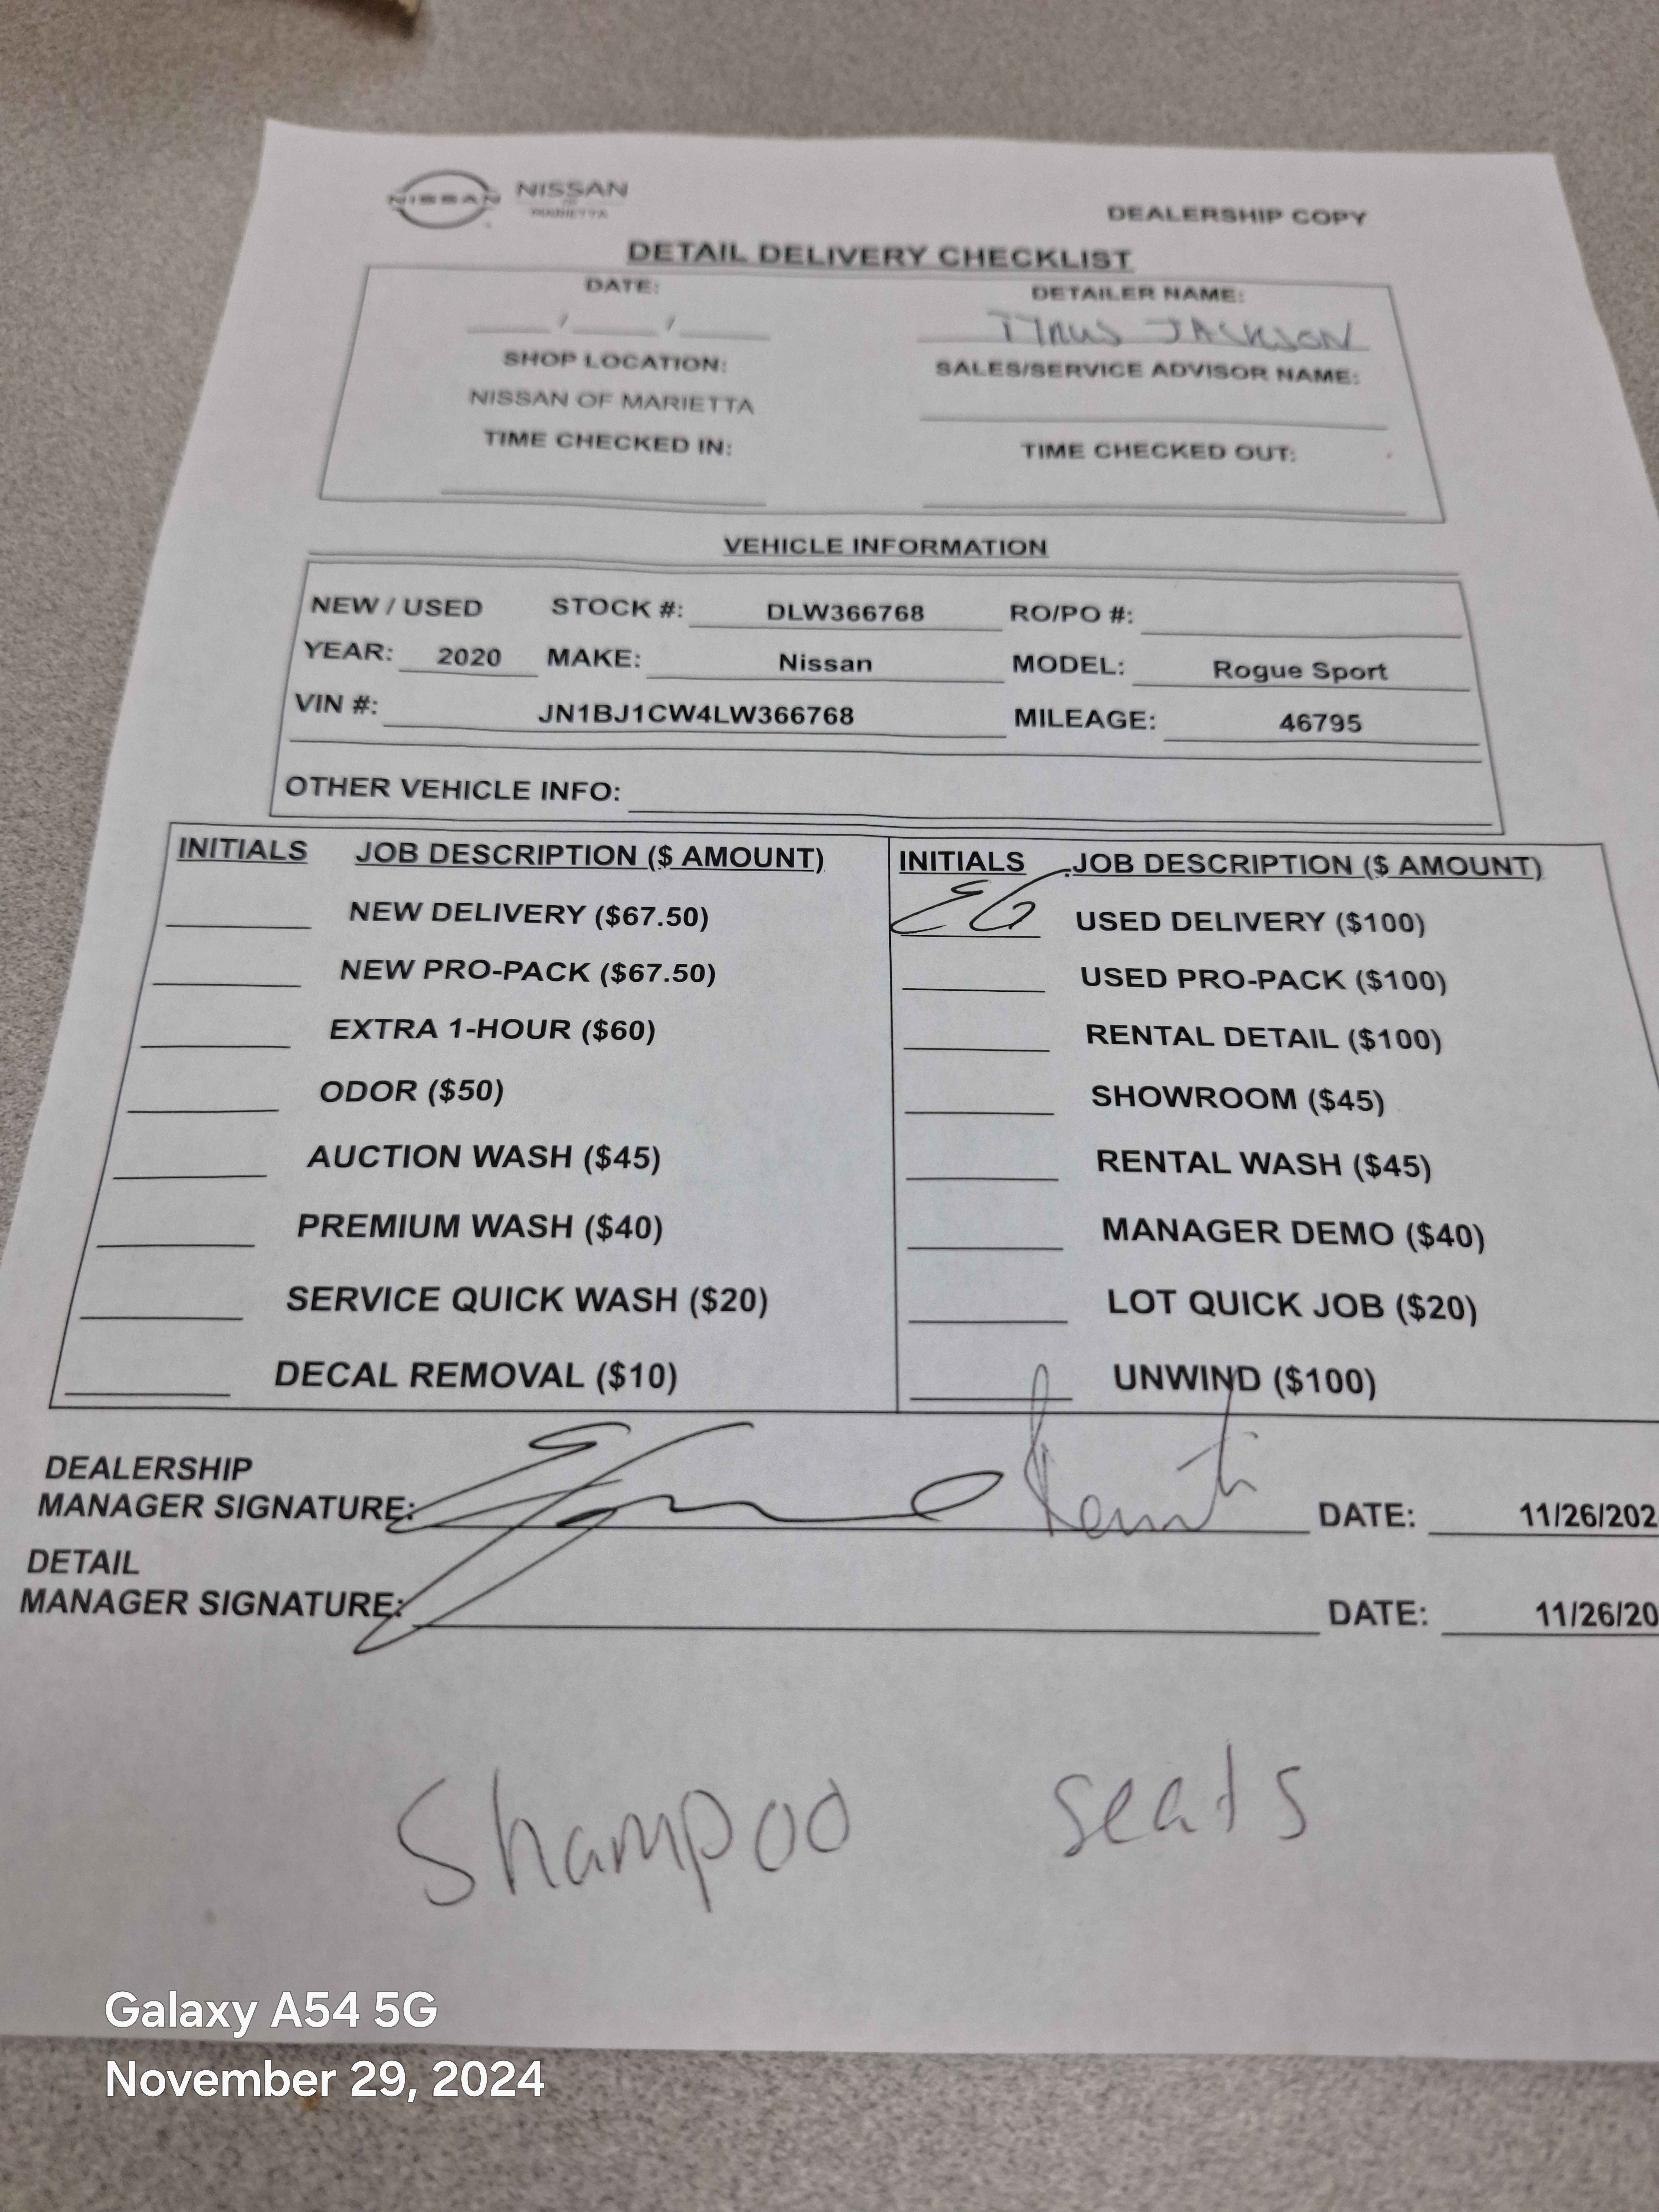 NISSAN NISSAN
OF
MARIETTA
DEALERSHIP COPY
DETAIL DELIVERY CHECKLIST
DATE: DETAILER NAME:
/ / JACKSON
SHOP LOCATION: SALES/SERVICE ADVISOR NAME:
NISSAN OF MARIETTA
TIME CHECKED IN: TIME CHECKED OUT:
VEHICLE INFORMATION
NEW / USED STOCK #: DLW366768 RO/PO #:
YEAR: 2020 MAKE: Nissan MODEL: Rogue Sport
VIN #: JN1BJ1CW4LW366768 MILEAGE: 46795
OTHER VEHICLE INFO:
INITIALS JOB DESCRIPTION ($ AMOUNT) INITIALS JOB DESCRIPTION ($ AMOUNT)
NEW DELIVERY ($67.50) EG USED DELIVERY ($100)
NEW PRO-PACK ($67.50) USED PRO-PACK ($100)
EXTRA 1-HOUR ($60) RENTAL DETAIL ($100)
ODOR ($50) SHOWROOM ($45)
AUCTION WASH ($45) RENTAL WASH ($45)
PREMIUM WASH ($40) MANAGER DEMO ($40)
SERVICE QUICK WASH ($20) LOT QUICK JOB ($20)
DECAL REMOVAL ($10) UNWIND ($100)
DEALERSHIP
MANAGER SIGNATURE: DATE: 11/26/202
DETAIL
MANAGER SIGNATURE: DATE: 11/26/20
Shampoo seats
Galaxy A54 5G
November 29, 2024